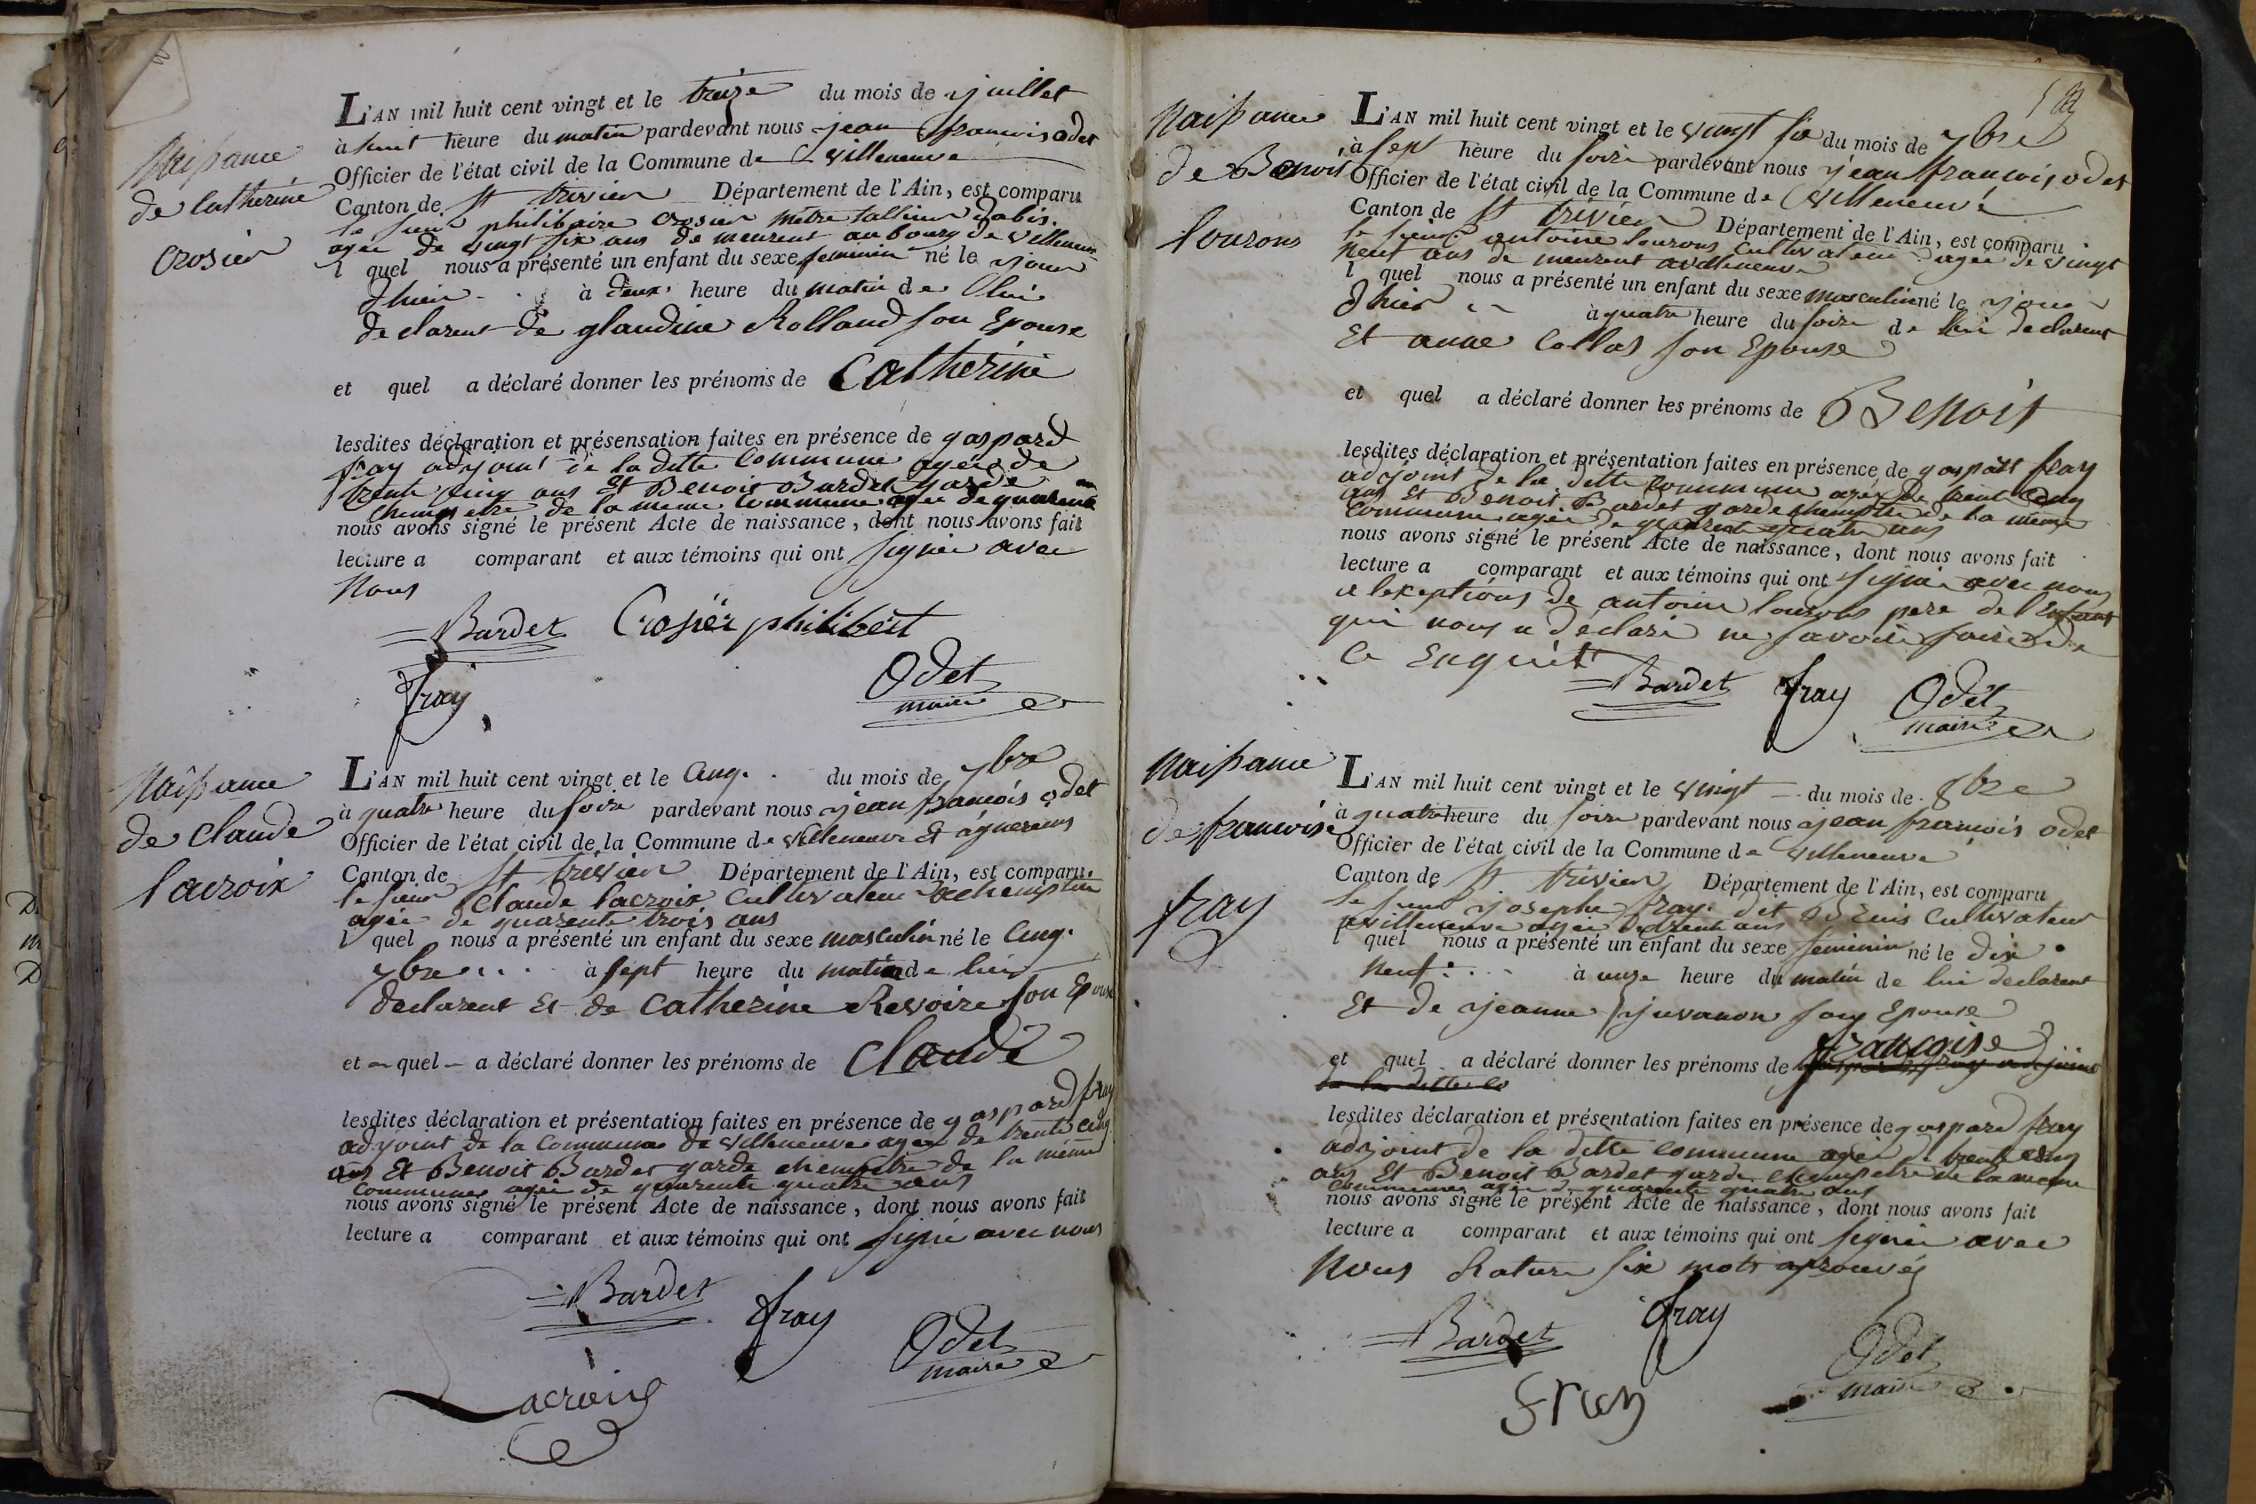 Naissance
de Catherine
Crosier
L'AN mil huit cent vingt et le treize du mois de juillet
à huit heure du matin pardevant nous jean françois odet
Officier de l'état civil de la Commune de villeneuve
Canton de St trivier Département de l'Ain, est comparu
le sieur philibaire crosier metre tallieur dabis
agée de vingt six ans de meurent au bourg de villeneuve
l quel nous a présenté un enfant du sexe feminin né le jour
dhier à deux heure du matin de lui
declarent de glaudine Rolland son Epouse
et quel a déclaré donner les prénoms de Catherine
lesdites déclaration et présensation faites en présence de gaspard
fray adjoint de la ditte Commune agée de
trente cinq ans Et Benoit Bardet garde
champetre de la meme Commune agée de quarente
nous avons signé le présent Acte de naissance, dont nous avons fait
lecture a comparant et aux témoins qui ont signée avec
Nous
Bardet Crosier philibert
fray Odet
maire
Naissance
de Claude
Lacroix
L'AN mil huit cent vingt et le Cinq du mois de 7bre
à quatre heure du soire pardevant nous jean françois odet
Officier de l'état civil de la Commune de villeneuve Et agnereins
Canton de St trivier Département de l'Ain, est comparu
le sieur Claude lacroix Cultivateur
agée de quarente trois ans
l quel nous a présenté un enfant du sexe masculin né le Cinq
7bre à sept heure du matin de lui
declarent Et de Catherine Revoire son Epouse
et quel a déclaré donner les prénoms de Claude
lesdites déclaration et présentation faites en présence de gaspard fray
adjoint de la Commune de villeneuve agée de trente cinq
ans Et Benoit Bardet garde champetre de la meme
Commune agée de quarente quatre ans
nous avons signé le présent Acte de naissance, dont nous avons fait
lecture a comparant et aux témoins qui ont signé avec nous
Bardet fray
Odet
maire
Lacroix
Naissance
de Benoit
Lourons
L'AN mil huit cent vingt et le vingt six du mois de 7bre
à sept heure du soire pardevant nous jean françois odet
Officier de l'état civil de la Commune de villeneuve
Canton de St trivier Département de l'Ain, est comparu
le sieur antoine lourons cultivateur agée de vingt
neuf ans de meurent a villeneuve
l quel nous a présenté un enfant du sexe masculin né le jour
dhier à quatre heure du soire de lui declarent
Et anne Collas son Epouse
et quel a déclaré donner les prénoms de Benoit
lesdites déclaration et présentation faites en présence de gaspard fray
adjoint de la ditte Commune agée de trente Cinq
ans Et Benoit Bardet garde champetre de la meme
Commune agée de quarente quatre ans
nous avons signé le présent Acte de naissance, dont nous avons fait
lecture a comparant et aux témoins qui ont signée avec nous
a lexeptions de antoine lourons pere de l'Enfant
qui nous a declaré ne savoir faire de
ce Enquit
Bardet fray Odet
maire
Naissance
de françoise
fray
L'AN mil huit cent vingt et le vingt du mois de 8bre
à quatre heure du soire pardevant nous jean françois odet
Officier de l'état civil de la Commune de villeneuve
Canton de St trivier Département de l'Ain, est comparu
le sieur josephe fray dit Cultivateur
a villeneuve agée de trente ans
l quel nous a présenté un enfant du sexe feminin né le dix
neuf à unze heure du matin de lui declarent
Et de jeanne juvanon son Epouse
françoise
et quel a déclaré donner les prénoms de gaspard fray adjoint
de la ditte co
lesdites déclaration et présentation faites en présence de gaspard fray
adjoint de la ditte commune agée de trente cinq
ans Et Benoit Bardet garde champetre de la meme
Commune agée de quarente quatre ans
nous avons signé le présent Acte de naissance, dont nous avons fait
lecture a comparant et aux témoins qui ont signée avec
Nous Rature six mots aprouvés
Bardet fray
Odet
maire